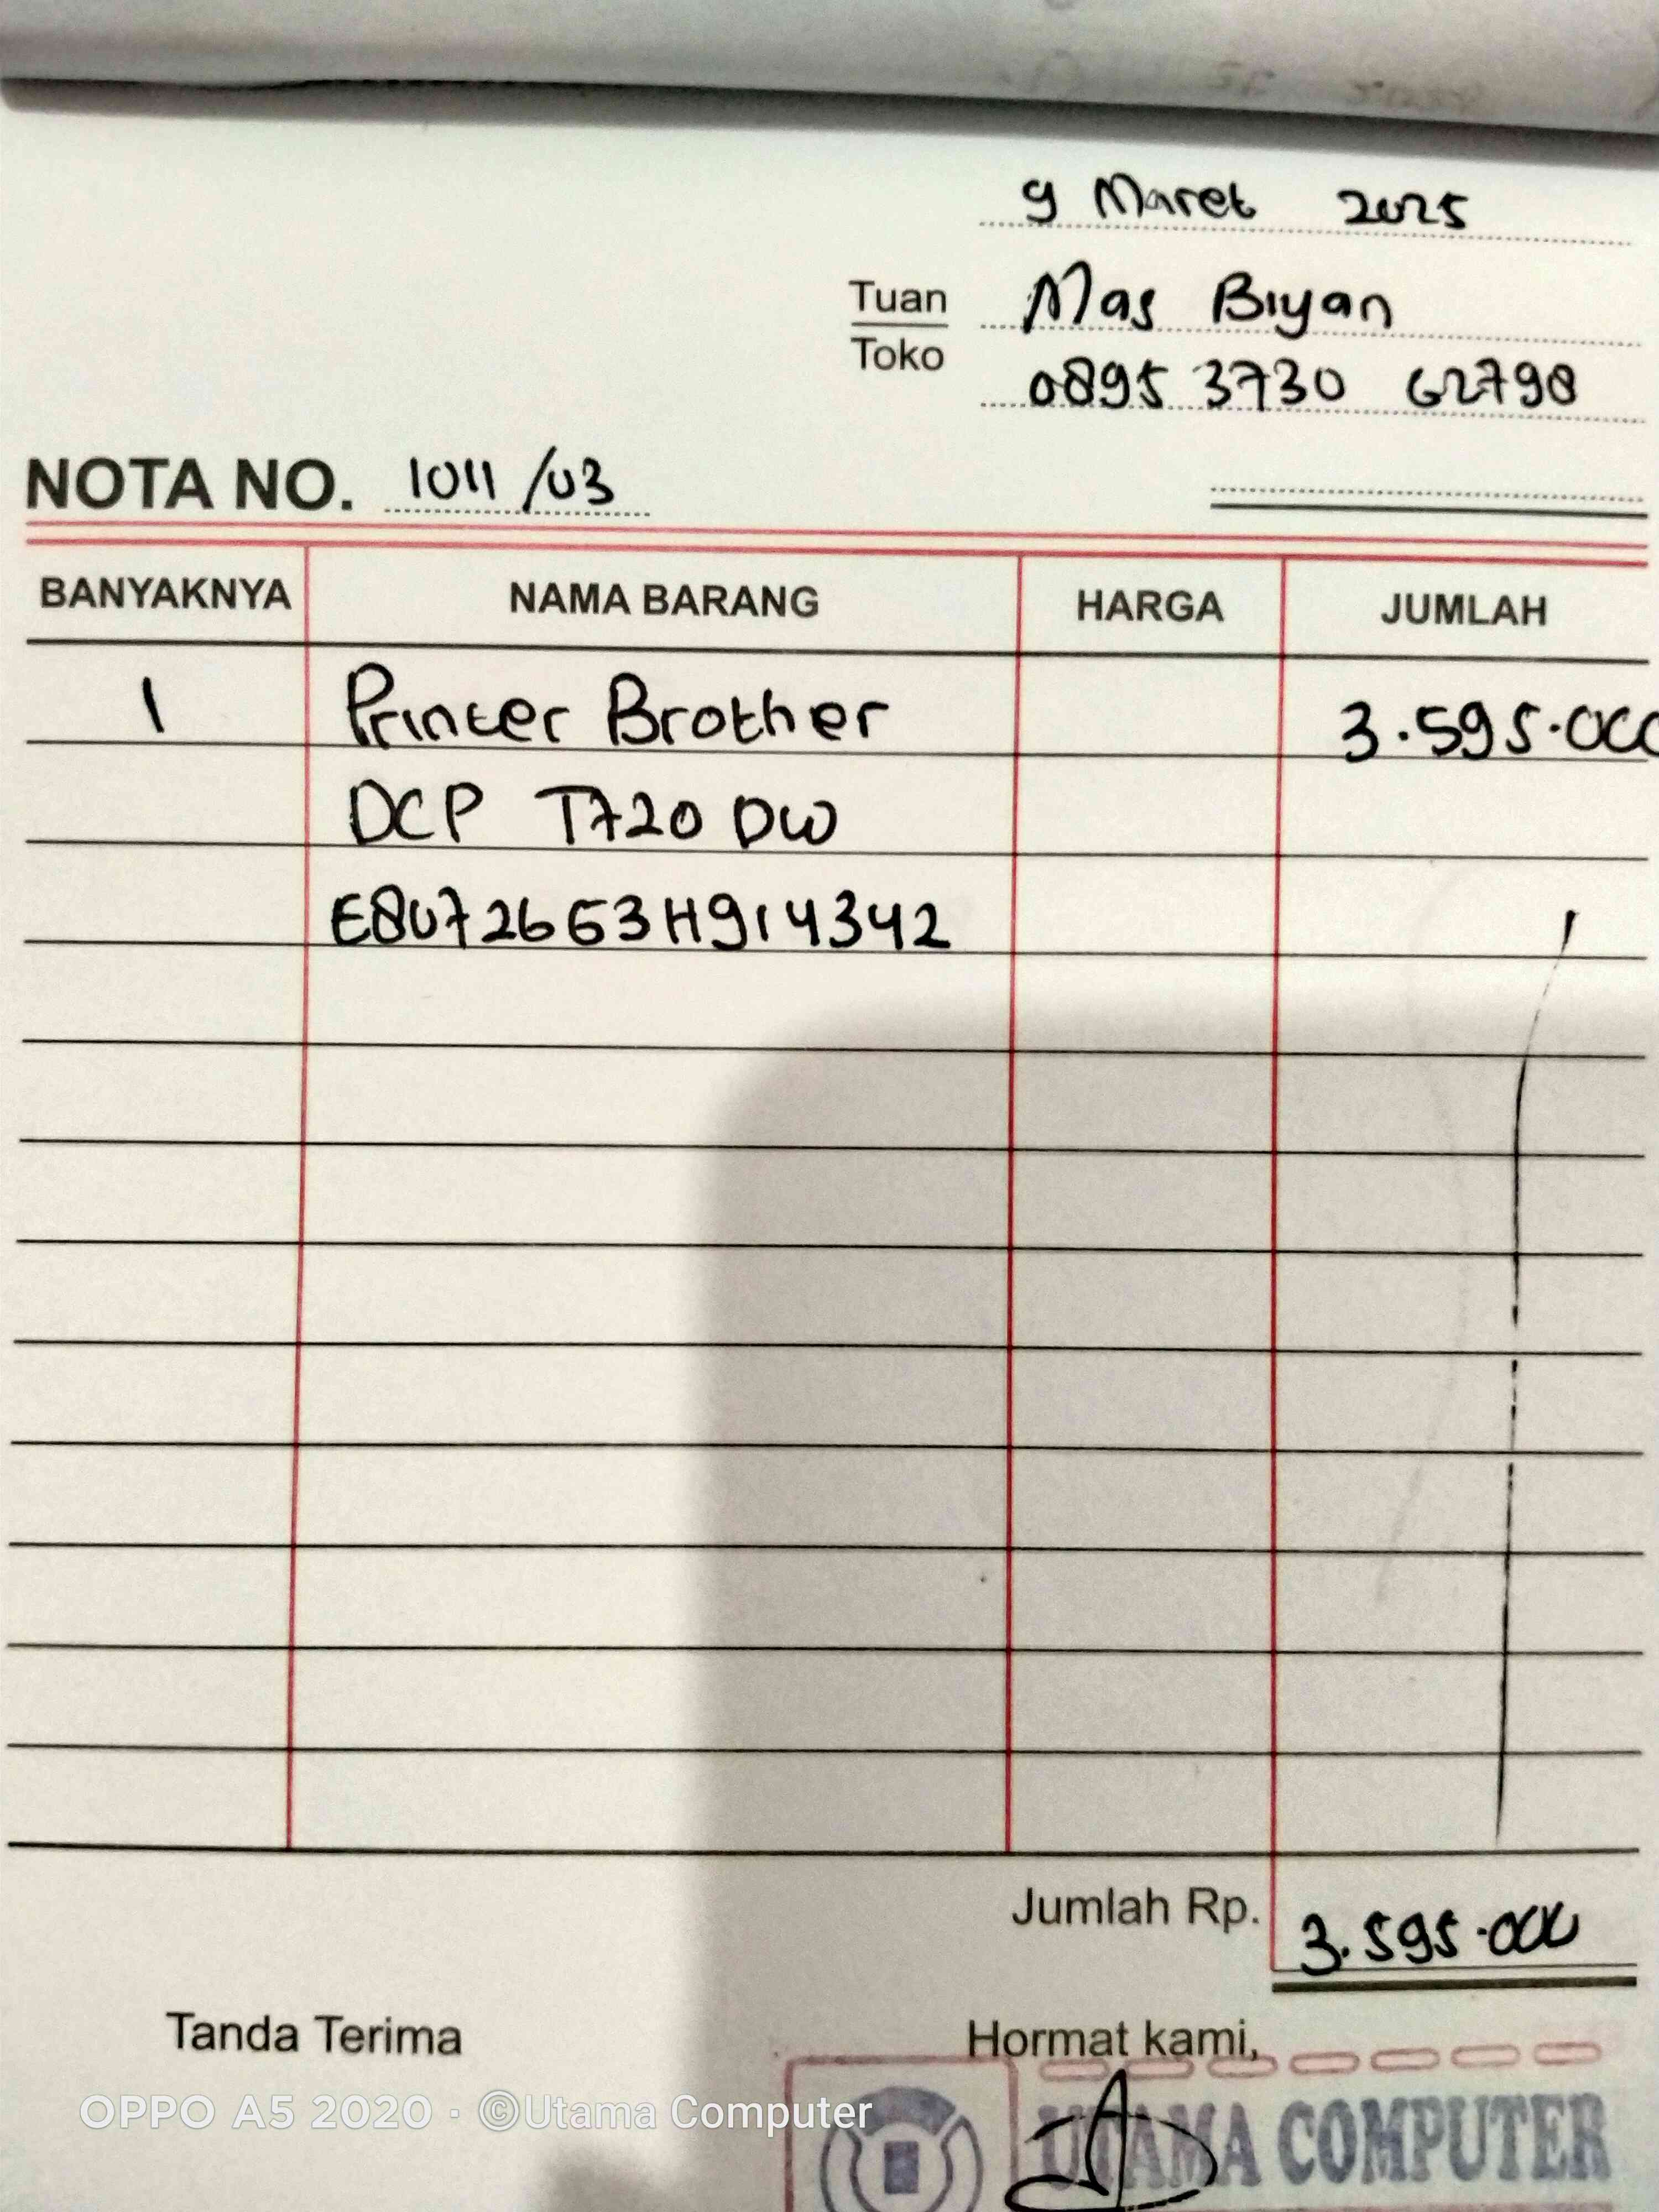 9 Maret 2025
Tuan Mas Biyan
Toko
0895 3730 62798
NOTA NO. 1011 /03
BANYAKNYA NAMA BARANG HARGA JUMLAH
1 Printer Brother 3.595.000
DCP T720 DW
E80726G3H914342
Jumlah Rp. 3.595.000
Tanda Terima Hormat kami,
OPPO A5 2020 · ©Utama Computer
UTAMA COMPUTER